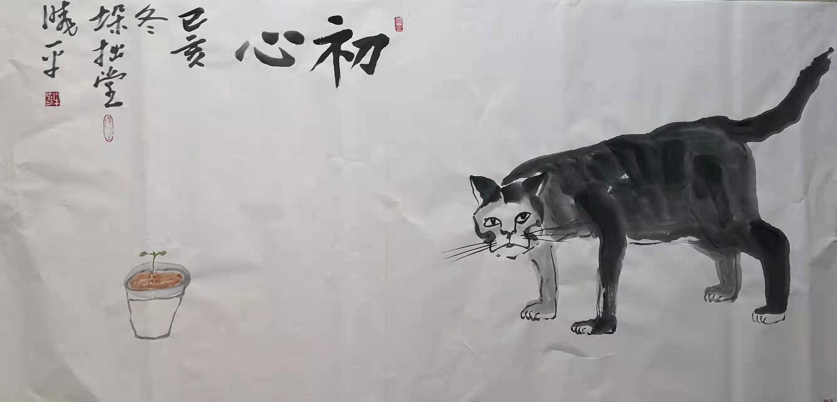 初心
己亥
冬
垛拙堂
晓平